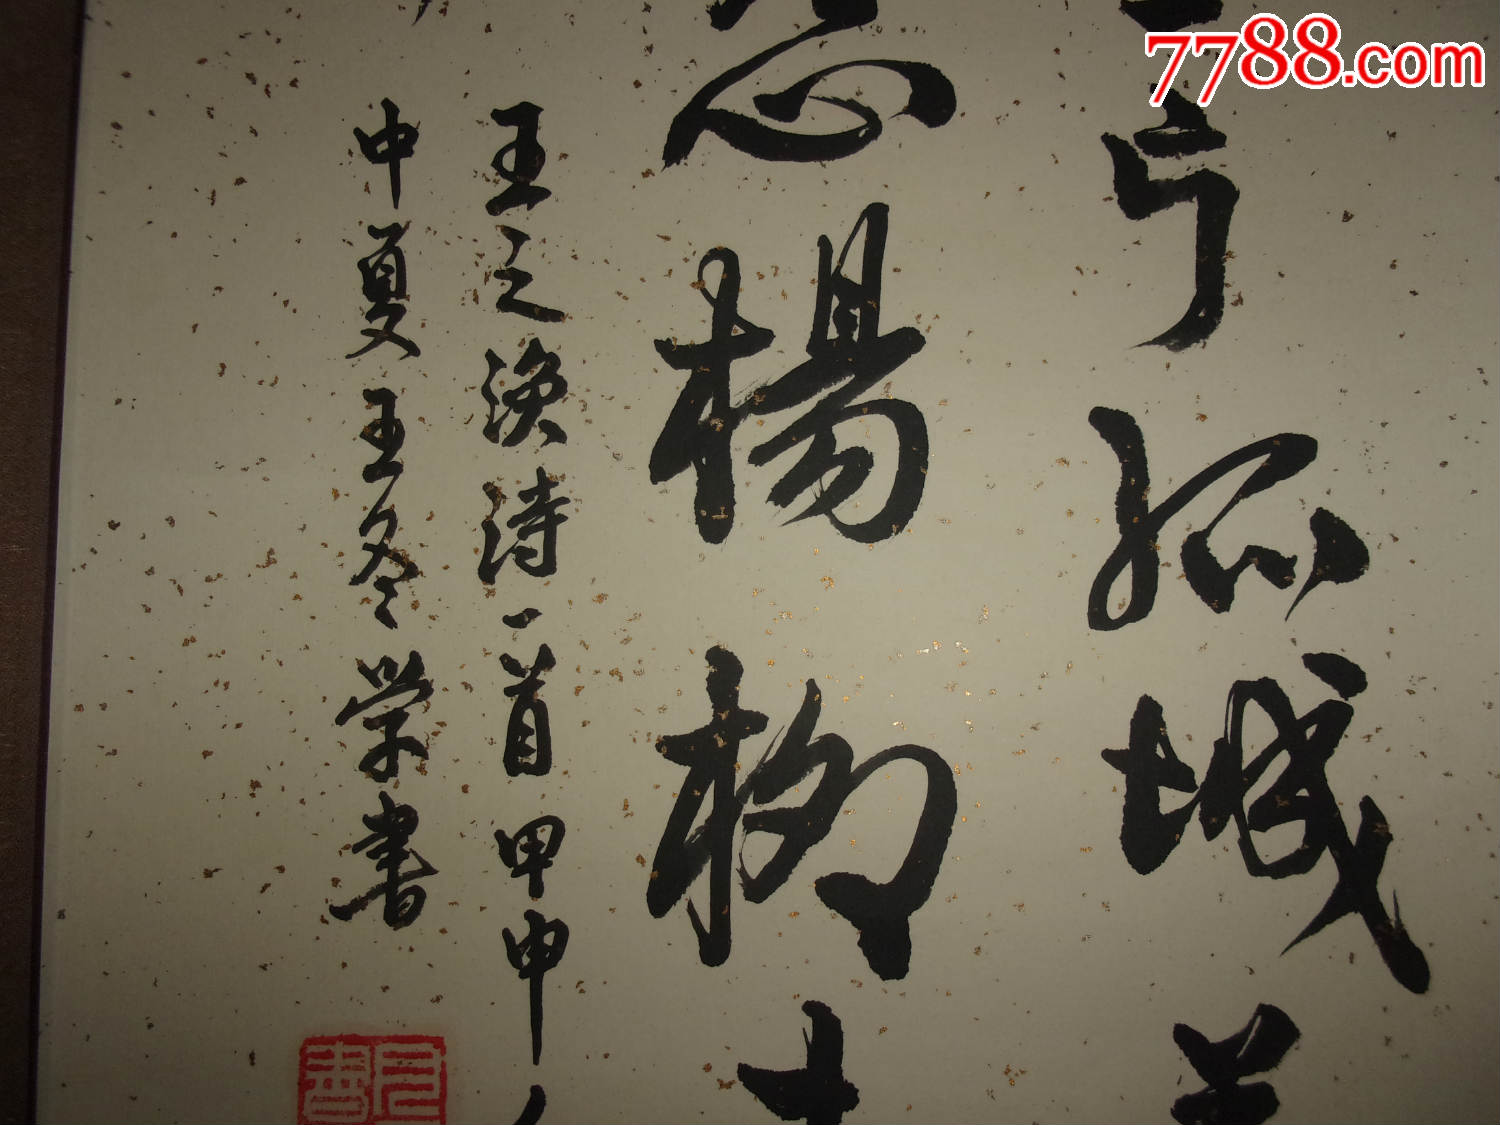 7788.com
孤城
怨楊柳
王之渙詩一首甲申
中夏王冬学書